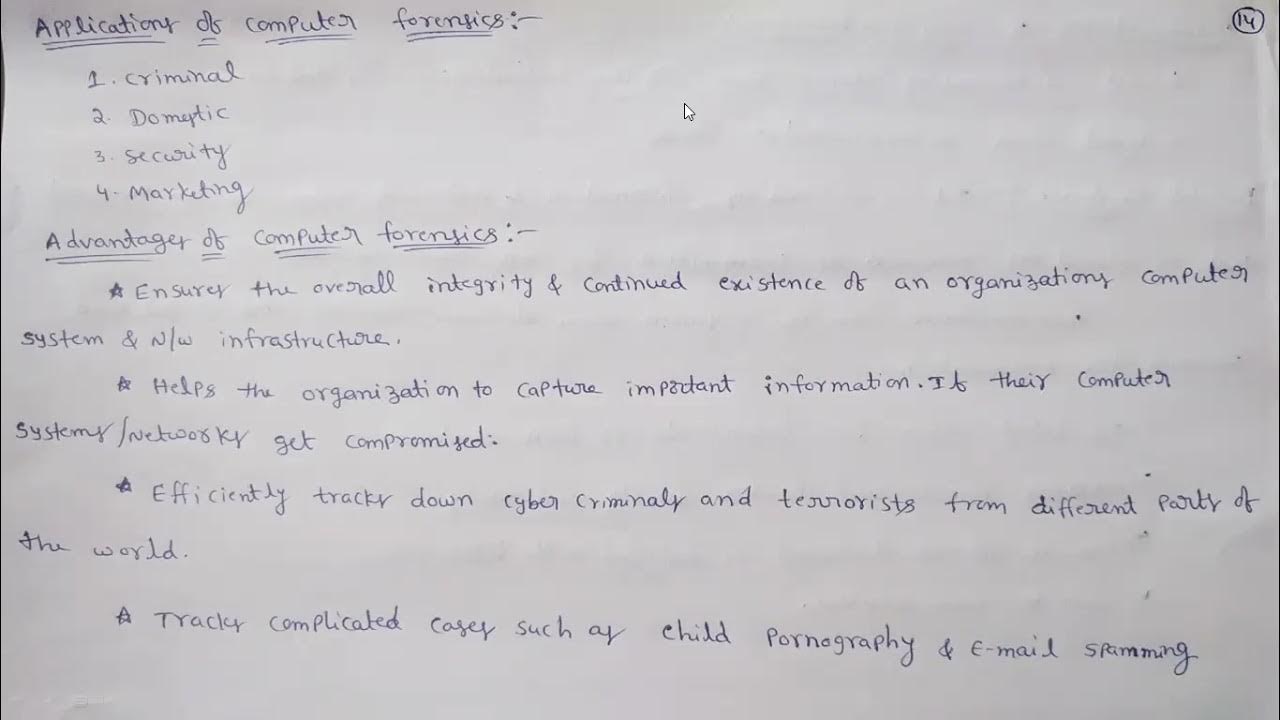 Applications of computer forensics:-
14
1. criminal
2. Domestic
3. security
4. Marketing
Advantages of computer forensics:-
* Ensures the overall integrity & continued existence of an organizations computer
system & N/w infrastructure.
* Helps the organization to capture important information. If their computer
systems/Networks get compromised.
* Efficiently tracks down cyber criminals and terrorists from different parts of
the world.
* Tracks complicated cases such as child pornography & E-mail spamming